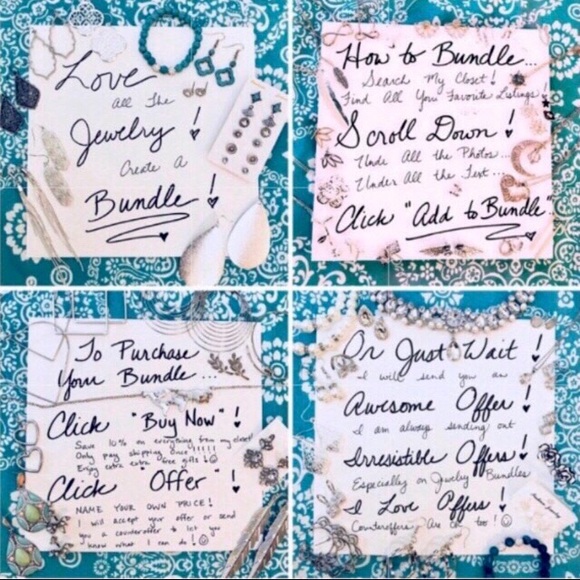 Love
All The
Jewelry!
Create A
Bundle!
How to Bundle...
Search My Closet!
Find All Your Favorite Listings!
Scroll Down!
Unde All the Photos...
Under All the Text...
Click "Add to Bundle"
To Purchase
Your Bundle...
Click "Buy Now"!
Save 10% on everything from my closet!
Only pay shipping once!!!!!
Enjoy extra extra free gifts!
Click "Offer"!
NAME YOUR OWN PRICE!
I will accept your offer or send
you a counteroffer to let you
know what I can do!
Or Just Wait!
I will send you an
Awesome Offer!
I am always sending out
Irresistible Offers!
Especially on Jewelry Bundles
I Love Offers!
Counteroffers Are OK too!